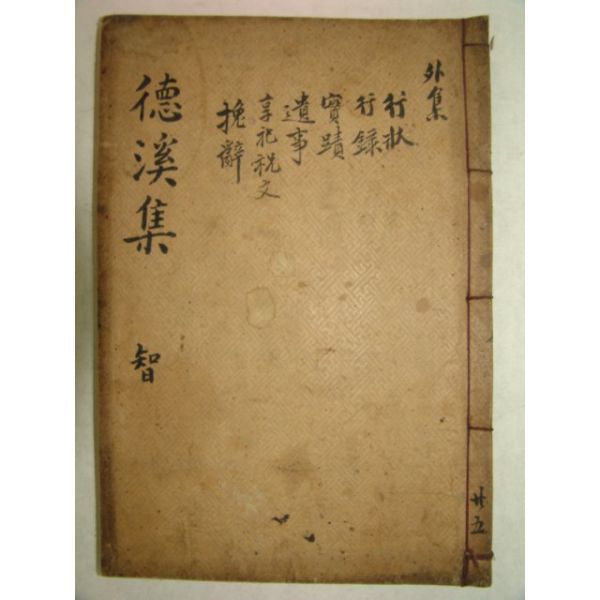 外集
行狀
行錄
實蹟
遺事
享祀祝文
挽辭
德溪集
智
廿五